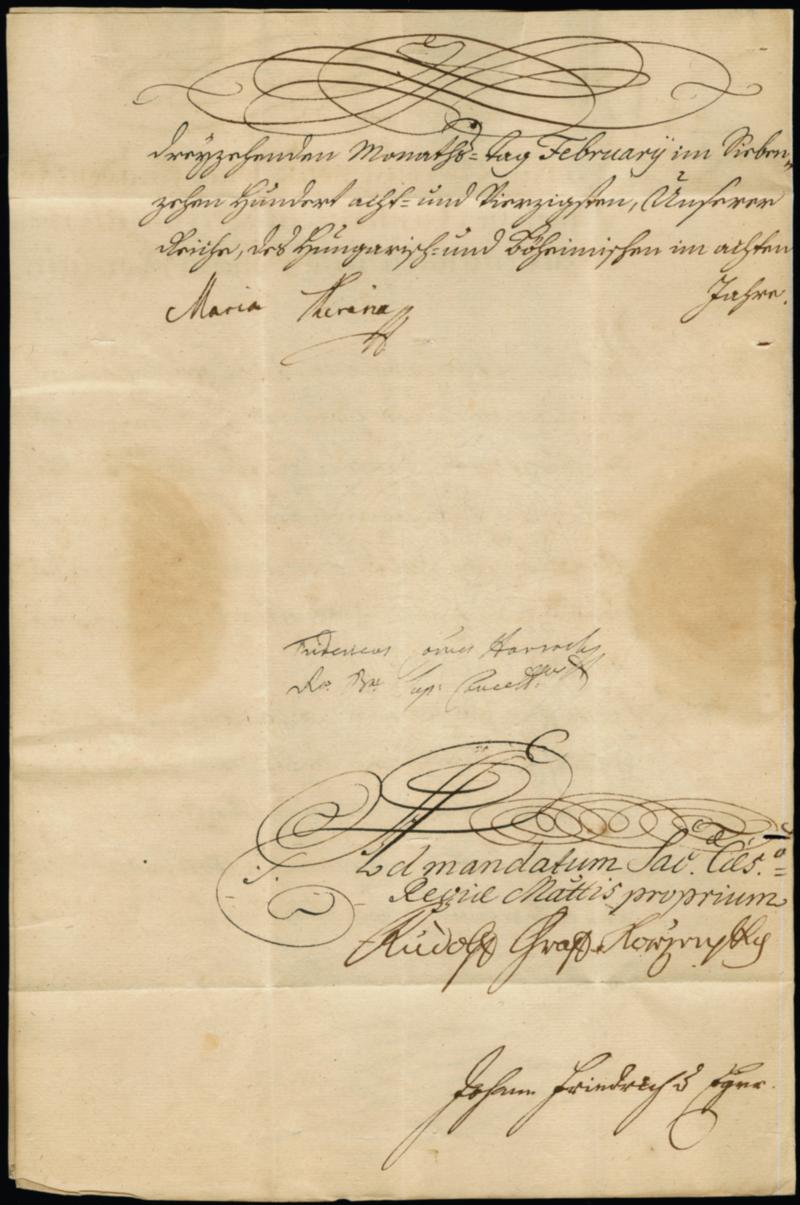 dreÿzehenden Monaths-tag Februarÿ im Sieben-
zehen Hundert acht- und Vierzigsten, Unserer
Reiche, des Hungarisch- und Böheimischen im achten
Jahre.
Maria Theresia
Fridericus Comes Harrach
Rae. Bae. Sup. Cancell.
Ad mandatum Sac. Cæs.o=
Regiæ Mattis proprium
Rudolph Graff Korzensky
Johann Friedrich v Eger